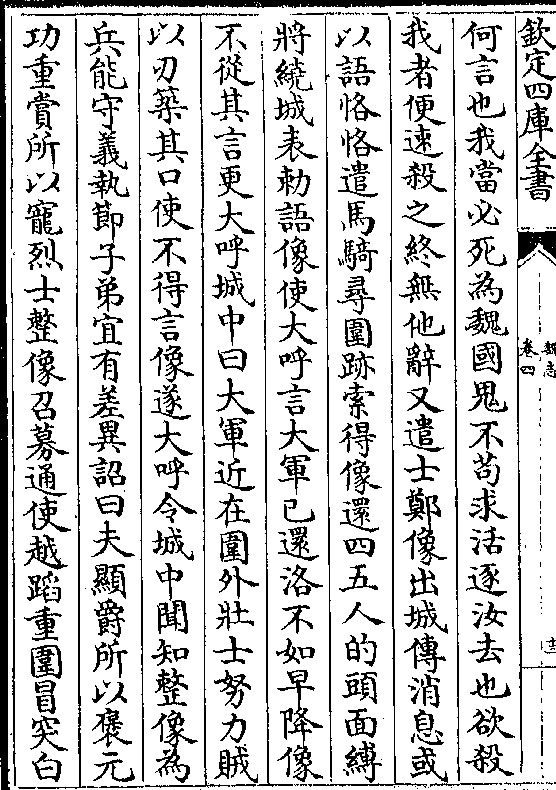 欽定四庫全書
魏志
卷四
十三
何言也我當必死為魏國鬼不苟求活逐汝去也欲殺
我者便速殺之終無他辭又遣士鄭像出城傳消息或
以語恪恪遣馬騎尋圍跡索得像還四五人的頭面縛
將繞城表勅語像使大呼言大軍已還洛不如早降像
不從其言更大呼城中曰大軍近在圍外壯士努力賊
以刀築其口使不得言像遂大呼令城中聞知整像為
兵能守義執節子弟宜有差異詔曰夫顯爵所以褒元
功重賞所以寵烈士整像召募通使越蹈重圍冒突白